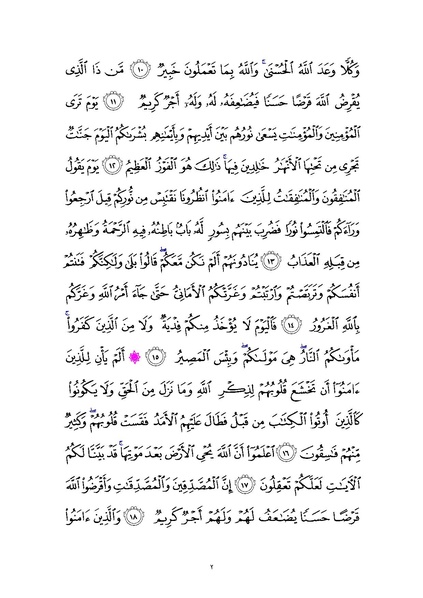 وَكُلًّا وَعَدَ ٱللَّهُ ٱلْحُسْنَىٰ ۚ وَٱللَّهُ بِمَا تَعْمَلُونَ خَبِيرٌ ١٠ مَّن ذَا ٱلَّذِى
يُقْرِضُ ٱللَّهَ قَرْضًا حَسَنًا فَيُضَـٰعِفَهُۥ لَهُۥ وَلَهُۥٓ أَجْرٌ كَرِيمٌ ١١ يَوْمَ تَرَى
ٱلْمُؤْمِنِينَ وَٱلْمُؤْمِنَـٰتِ يَسْعَىٰ نُورُهُم بَيْنَ أَيْدِيهِمْ وَبِأَيْمَـٰنِهِم بُشْرَىٰكُمُ ٱلْيَوْمَ جَنَّـٰتٌ
تَجْرِى مِن تَحْتِهَا ٱلْأَنْهَـٰرُ خَـٰلِدِينَ فِيهَا ۚ ذَٰلِكَ هُوَ ٱلْفَوْزُ ٱلْعَظِيمُ ١٢ يَوْمَ يَقُولُ
ٱلْمُنَـٰفِقُونَ وَٱلْمُنَـٰفِقَـٰتُ لِلَّذِينَ ءَامَنُوا۟ ٱنظُرُونَا نَقْتَبِسْ مِن نُّورِكُمْ قِيلَ ٱرْجِعُوا۟
وَرَآءَكُمْ فَٱلْتَمِسُوا۟ نُورًا فَضُرِبَ بَيْنَهُم بِسُورٍ لَّهُۥ بَابٌۢ بَاطِنُهُۥ فِيهِ ٱلرَّحْمَةُ وَظَـٰهِرُهُۥ
مِن قِبَلِهِ ٱلْعَذَابُ ١٣ يُنَادُونَهُمْ أَلَمْ نَكُن مَّعَكُمْ ۖ قَالُوا۟ بَلَىٰ وَلَـٰكِنَّكُمْ فَتَنتُمْ
أَنفُسَكُمْ وَتَرَبَّصْتُمْ وَٱرْتَبْتُمْ وَغَرَّتْكُمُ ٱلْأَمَانِىُّ حَتَّىٰ جَآءَ أَمْرُ ٱللَّهِ وَغَرَّكُم
بِٱللَّهِ ٱلْغَرُورُ ١٤ فَٱلْيَوْمَ لَا يُؤْخَذُ مِنكُمْ فِدْيَةٌ وَلَا مِنَ ٱلَّذِينَ كَفَرُوا۟ ۚ
مَأْوَىٰكُمُ ٱلنَّارُ ۖ هِىَ مَوْلَىٰكُمْ ۖ وَبِئْسَ ٱلْمَصِيرُ ١٥ ۞ أَلَمْ يَأْنِ لِلَّذِينَ
ءَامَنُوٓا۟ أَن تَخْشَعَ قُلُوبُهُمْ لِذِكْرِ ٱللَّهِ وَمَا نَزَلَ مِنَ ٱلْحَقِّ وَلَا يَكُونُوا۟
كَٱلَّذِينَ أُوتُوا۟ ٱلْكِتَـٰبَ مِن قَبْلُ فَطَالَ عَلَيْهِمُ ٱلْأَمَدُ فَقَسَتْ قُلُوبُهُمْ ۖ وَكَثِيرٌ
مِّنْهُمْ فَـٰسِقُونَ ١٦ ٱعْلَمُوٓا۟ أَنَّ ٱللَّهَ يُحْىِ ٱلْأَرْضَ بَعْدَ مَوْتِهَا ۚ قَدْ بَيَّنَّا لَكُمُ
ٱلْـَٔايَـٰتِ لَعَلَّكُمْ تَعْقِلُونَ ١٧ إِنَّ ٱلْمُصَّدِّقِينَ وَٱلْمُصَّدِّقَـٰتِ وَأَقْرَضُوا۟ ٱللَّهَ
قَرْضًا حَسَنًا يُضَـٰعَفُ لَهُمْ وَلَهُمْ أَجْرٌ كَرِيمٌ ١٨ وَٱلَّذِينَ ءَامَنُوا۟
٢